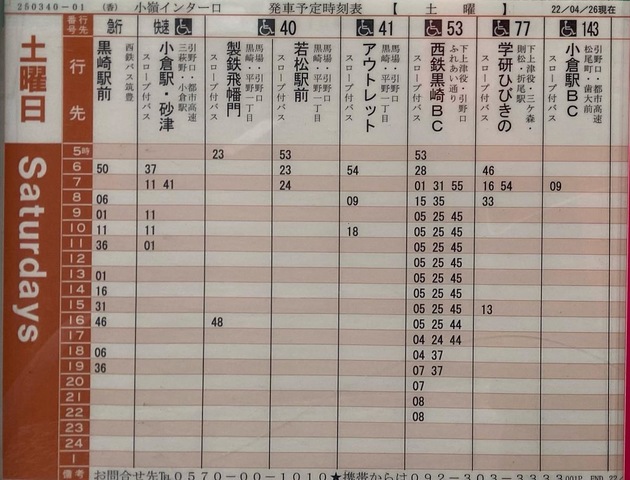 250340-01 (香) 小嶺インター口 発車予定時刻表 【 土 曜 】 22/04/26現在
土曜日
Saturdays
行先番号 急行 快速 40 41 53 77 143
行先
黒崎駅前
西鉄バス筑豊
小倉駅・砂津
引野口・都市高速
三萩野・小倉駅
スロープ付バス
製鉄飛幡門
馬場・引野口
黒崎・平野一丁目
スロープ付バス
若松駅前
馬場・引野口
黒崎・平野一丁目
スロープ付バス
アウトレット
馬場・引野口
黒崎・平野一丁目
スロープ付バス
西鉄黒崎BC
下上津役・引野口
ふれあい通り
スロープ付バス
学研ひびきの
下上津役・三ケ森・
則松・折尾駅
スロープ付バス
小倉駅BC
引野口・都市高速
松尾町・歯大前
スロープ付バス
5時 23 53 53
6 50 37 23 54 28 46
7 11 41 24 01 31 55 16 54 09
8 06 09 15 35 33
9 01 11 05 25 45
10 11 11 18 05 25 45
11 36 01 05 25 45
12 05 25 45
13 01 05 25 45
14 16 05 25 45
15 31 05 25 45 13
16 46 48 05 25 44
17 04 24 44
18 06 04 37
19 36 07 37
20 07
21 08
22 08
23
24
1
備考 お問合せ先℡0570-00-1010★携帯からは092-303-3333